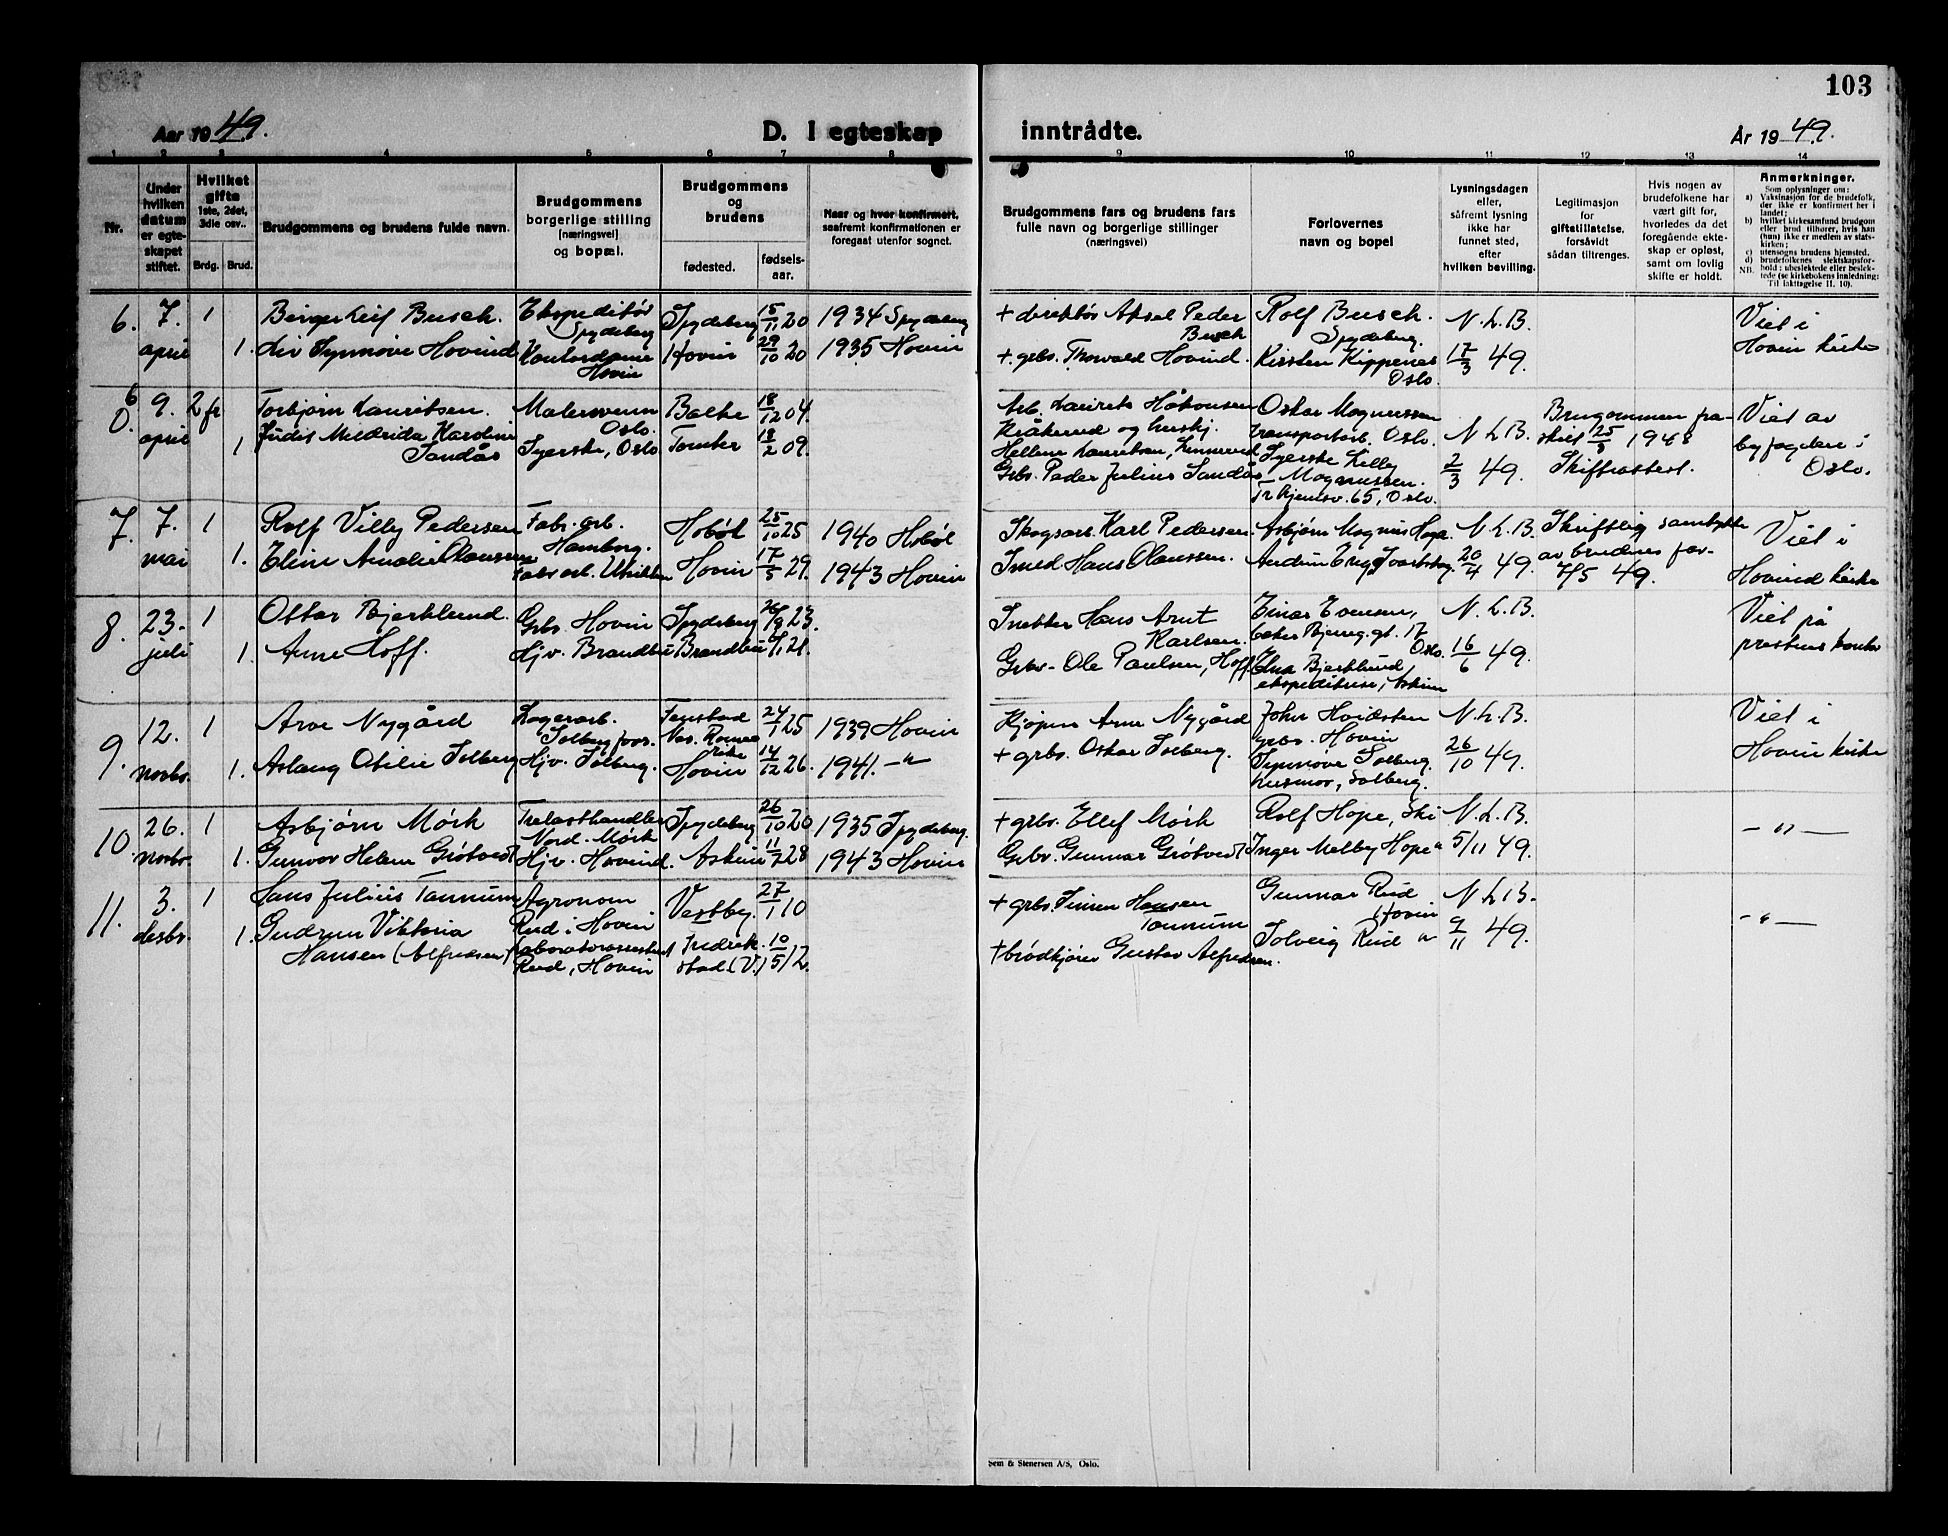 103
Aar 1949.
D. I egteskap
inntrådte.
År 1949.
1 2 3 4 5 6 7 8
9 10 11 12 13 14
Nr.
Under hvilken datum er egteskapet stiftet.
Hvilket gifte 1ste, 2det, 3die osv..
Brdg. Brud.
Brudgommens og brudens fulde navn.
Brudgommens borgerlige stilling (næringsvei) og bopæl.
Brudgommens og brudens
fødested. fødselsaar.
Naar og hvor konfirmert, saafremt konfirmationen er foregaat utenfor sognet.
Brudgommens fars og brudens fars fulle navn og borgerlige stillinger (næringsvei)
Forlovernes navn og bopel
Lysningsdagen eller, såfremt lysning ikke har funnet sted, efter hvilken bevilling.
Legitimasjon for giftetillatelse, forsåvidt sådan tiltrenges.
Hvis nogen av brudefolkene har vært gift før, hvorledes da det foregående ekteskap er opløst, samt om lovlig skifte er holdt.
Anmerkninger.
Som oplysninger om:
a) Vaksinasjon for de brudefolk, der ikke er konfirmert her i landet;
b) hvilket kirkesamfund brudgom eller brud tilhører, hvis han (hun) ikke er medlem av statskirken;
c) utensogns brudens hjemsted.
d) brudefolkenes slektskapsforhold: ubeslektede eller beslektede (se kirkebokens innledning: NB. Til iakttagelse II. 10).
6. 7. april 1 Birger Leif Busch. Ekspeditør Spydeberg Spydeberg 15/11 20 1934 Spydeberg
1. Liv Synnøve Hovind Kontordame Hovin Hovin 29/10 20 1935 Hovin
+ direktør Aksel Peder Busch Rolf Busch. Spydeberg. N. L. B. Viet i
+ grbr. Thorvald Hovind. Kirsten Kippenes Oslo. 17/3 49. Hovin kirke
6 0. 9. april 2 fr Torbjørn Lauritsen. Malersvenn Oslo. Balke 18/12 04.
1 Judis Mildrida Karoline Sandås Syerske, Oslo Tomter 18/2 09.
Arb. Laurits Håkonsen Oskar Magnussen Brugommen fraskilt 25/3 1948 Viet av
og huskj. transportarb. Oslo. N L B. byfogden i
Hellene Lauritsen, Syerske Lilly 2/3 49. Skifteattest. Oslo.
Grbr. Peder Julius Sandås Magnussen.
65, Oslo.
7. 7. mai 1 Rolf Villy Pedersen Fabr. arb. Hamborg. Hobøl 25/10 25 1940 Hobøl
1. Eline Amalie Olaussen Fabr arb. Hovin 17/5 29. 1943 Hovin
Skogsarb. Karl Pedersen. Asbjørn Magnus N. L. B. Skriftlig samtykke Viet i
Smed. Hans Olaussen. 20/4 49. av brudens far- 7/5 49. Hovind kirke
8. 23. juli 1 Ottar Bjerklund. Grbr. Hovin Spydeberg 26/9 23.
1. Anne Hoff. Hjv. Brandbu Brandbu 21.
Snekker Hans Arnt Karlsen. Einar Evensen, N. L. B. Viet på
Oslo. 16/6 49. prestens kontor
Grbr- Ole Paulsen, Hoff. Edna Bjerklund, ekspeditrise, Askim
9. 12. novbr. 1 Arve Nygård Lagerarb. Solberg foss. Fenstad Nes. Romerike 24/1 25 1939 Hovin
1. Aslaug Otilie Solberg Hjv. Solberg. Hovin 14/12 26. 1941. -"-
Kjøpm Arne Nygård John Hvidsten grbr. Hovin N. L. B. Viet i
+ grbr. Oskar Solberg. Synnøve Solberg. husmor, Solberg. 26/10 49. Hovin kirke
10 26. novbr. 1 Asbjørn Mørk Trelasthandler Nord. Mørk Spydeberg 26/10 20 1935 Spydeberg.
1. Gunvor Helene Grøtvedt Hjv. Hovind. Askim 11/7 28 1943 Hovin
+ grbr. Ellef Mørk Rolf Hope, Ski N. L. B. -"-
Grbr. Gunnar Grøtvedt Inger Melby Hope " 5/11 49.
11. 3. desbr. 1 Hans Julius Tannum Agronom Rud i Hovin Vestby. 27/1 10
1. Gudrun Viktoria Hansen (Alfredsen) Laboratorieassistent Rud, Hovin Fredrikstad (V.) 10/5 12.
+ grbr. Simen Hansen Tannum Gunnar Rud Hovin N L B. -"-
+ brødkjører Gustav Alfredsen. Solveig Rud " 9/11 49.
Sem & Stenersen A/S, Oslo.